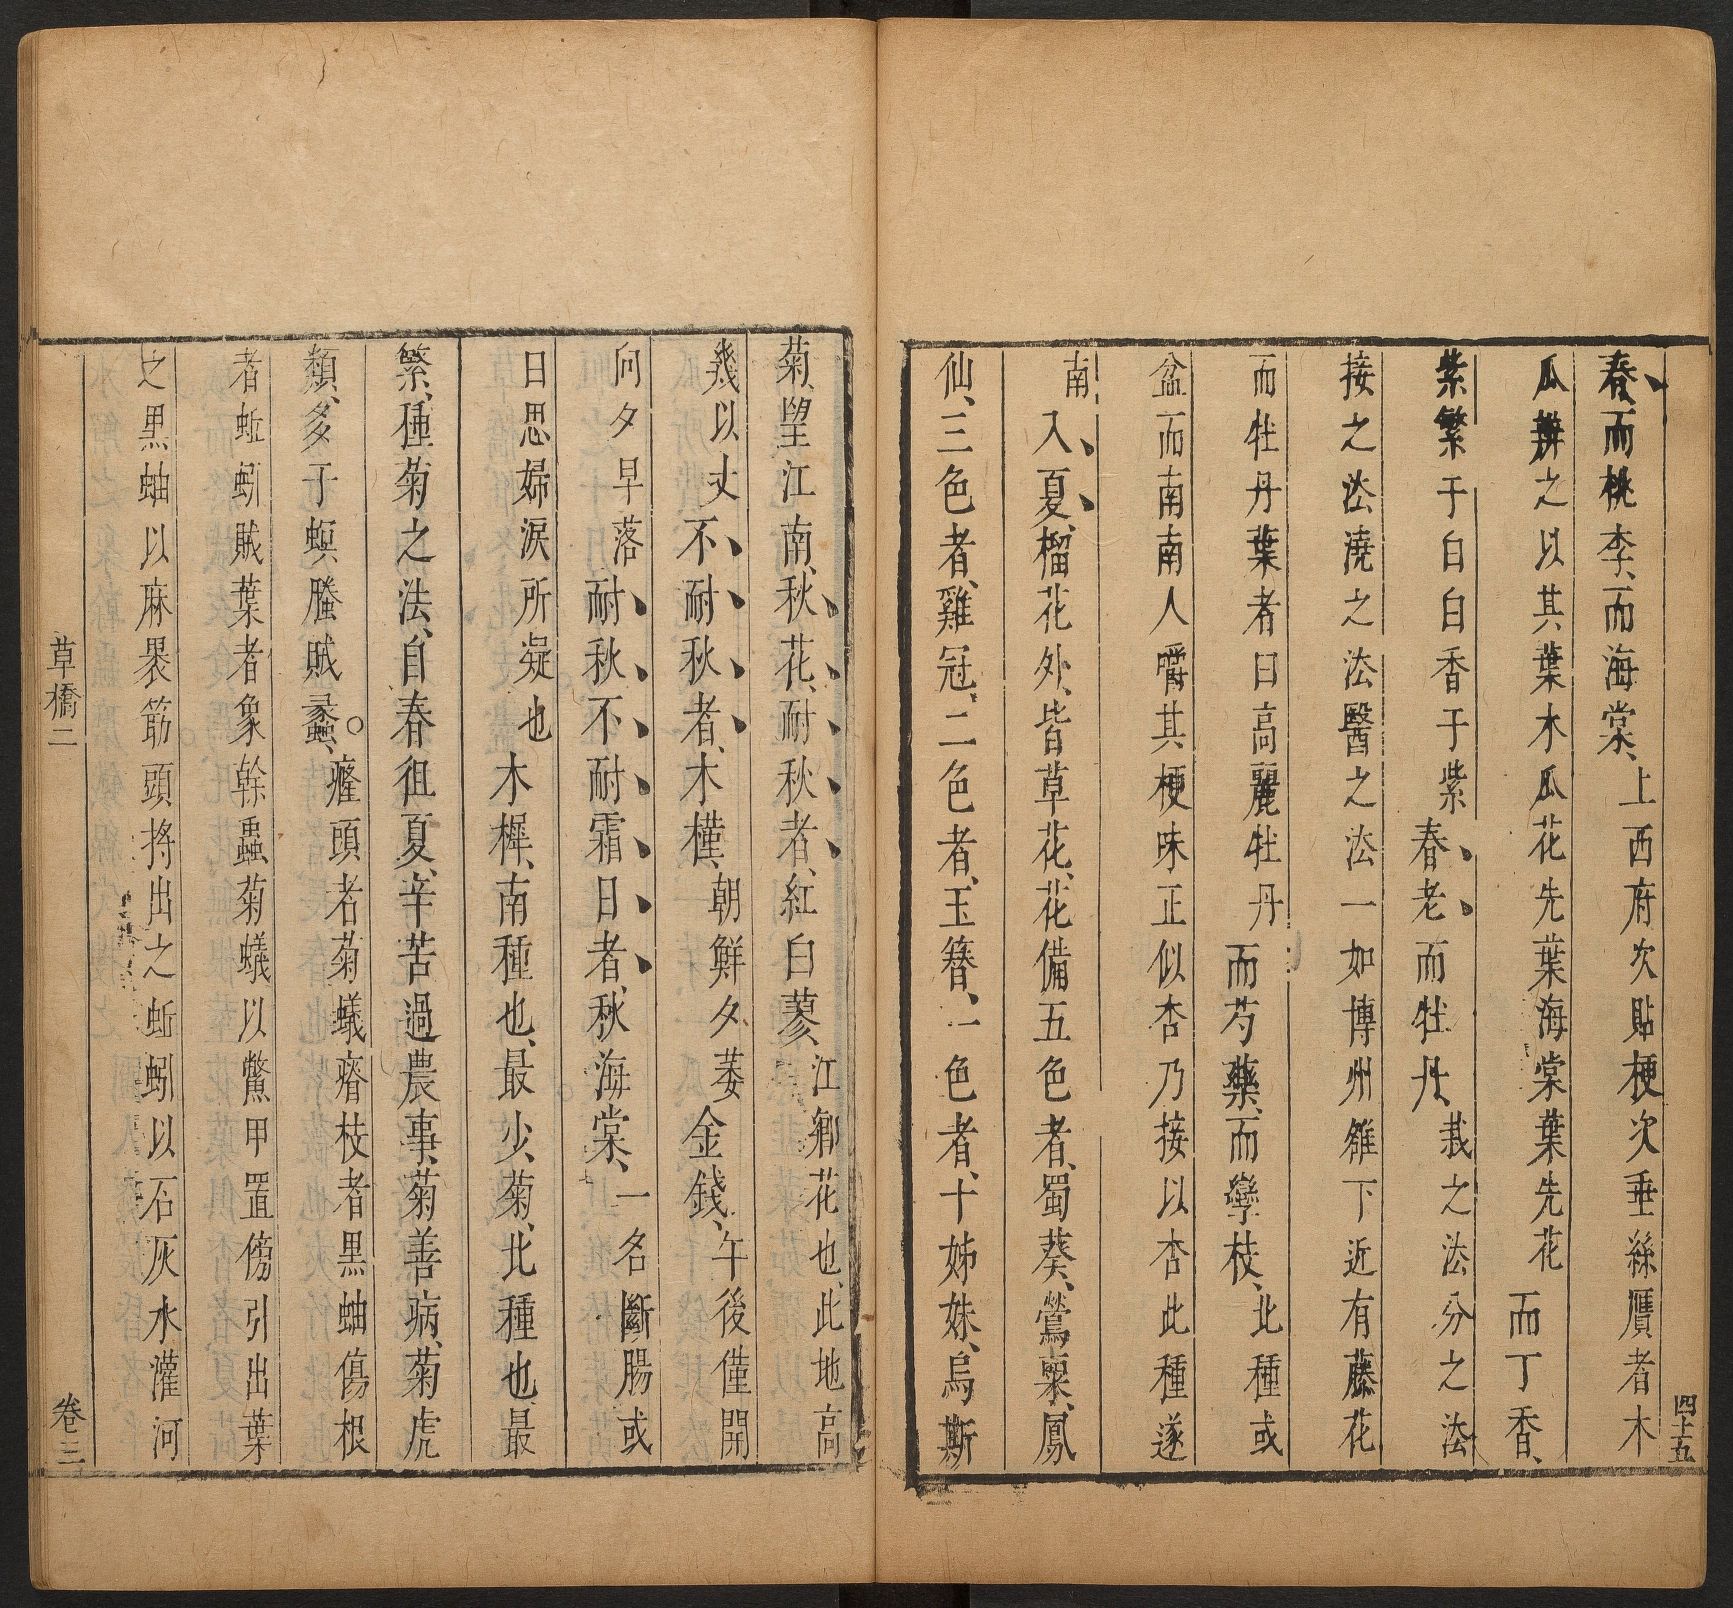 春而桃李而海棠上西府次貼梗次垂絲贋者木
瓜辨之以其葉木瓜花先葉海棠葉先花而丁香
紫繁于白白香于紫春老而牡丹栽之法分之法
接之法澆之法醫之法一如博州雒下近有藤花
而牡丹葉者曰高麗牡丹而芍藥而孿枝北種或
盆而南南人嚼其梗味正似杏乃接以杏此種遂
南入夏榴花外皆草花花備五色者蜀葵鶯粟鳳
仙三色者雞冠二色者玉簪一色者十姊妹烏斯
四十五
菊望江南秋花耐秋者紅白蓼江鄉花也此地高
幾以丈不耐秋者木槿朝鮮夕萎金錢午後僅開
向夕早落耐秋不耐霜日者秋海棠一名斷腸或
曰思婦淚所凝也木樨南種也最少菊北種也最
繁種菊之法自春徂夏辛苦過農事菊善病菊虎
類多于螟螣賊蟊○癃頭者菊蟻瘠枝者黑蚰傷根
者蚯蚓賊葉者象幹蟲菊蟻以鱉甲置傍引出葉
之黑蚰以麻褁筯頭捋出之蚯蚓以石灰水灌河
草橋二
卷三